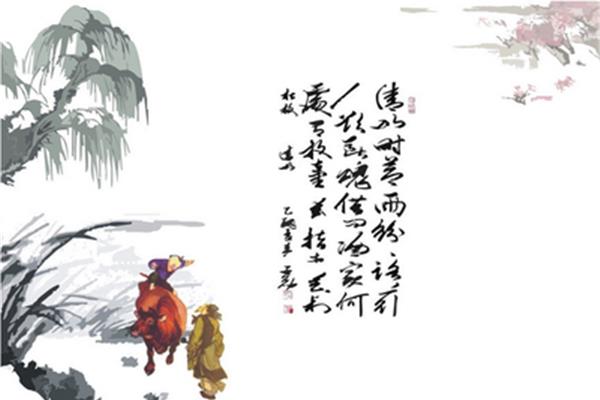 清明时节雨纷纷路行
人欲断魂借问酒家何
處有牧童遥指杏花村
杜牧 清明